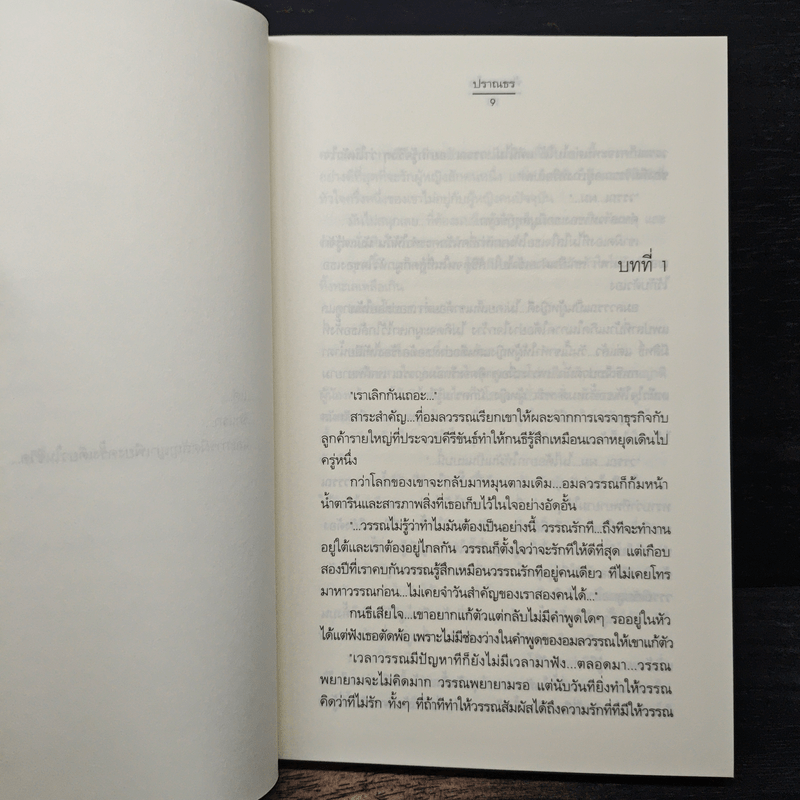 ปราณธร
9
บทที่ 1
"เราเลิกกันเถอะ..."
สาระสำคัญ...ที่อมลวรรณเรียกเขาให้ผละจากการเจรจาธุรกิจกับ
ลูกค้ารายใหญ่ที่ประจวบคีรีขันธ์ทำให้กนธีรู้สึกเหมือนเวลาหยุดเดินไป
ครู่หนึ่ง
กว่าโลกของเขาจะกลับมาหมุนตามเดิม...อมลวรรณก็ก้มหน้า
น้ำตารินและสารภาพสิ่งที่เธอเก็บไว้ในใจอย่างอัดอั้น
"...วรรณไม่รู้ว่าทำไมมันต้องเป็นอย่างนี้ วรรณรักที...ถึงทีจะทำงาน
อยู่ใต้และเราต้องอยู่ไกลกัน วรรณก็ตั้งใจว่าจะรักทีให้ดีที่สุด แต่เกือบ
สองปีที่เราคบกันวรรณรู้สึกเหมือนวรรณรักทีอยู่คนเดียว ทีไม่เคยโทร
มาหาวรรณก่อน...ไม่เคยจำวันสำคัญของเราสองคนได้..."
กนธีเสียใจ...เขาอยากแก้ตัวแต่กลับไม่มีคำพูดใดๆ รออยู่ในหัว
ได้แต่ฟังเธอตัดพ้อ เพราะไม่มีช่องว่างในคำพูดของอมลวรรณให้เขาแก้ตัว
"เวลาวรรณมีปัญหาทีก็ยังไม่มีเวลามาฟัง...ตลอดมา...วรรณ
พยายามจะไม่คิดมาก วรรณพยายามรอ แต่นับวันทียิ่งทำให้วรรณ
คิดว่าทีไม่รัก ทั้งๆ ที่ถ้าทีทำให้วรรณสัมผัสได้ถึงความรักที่ทีมีให้วรรณ